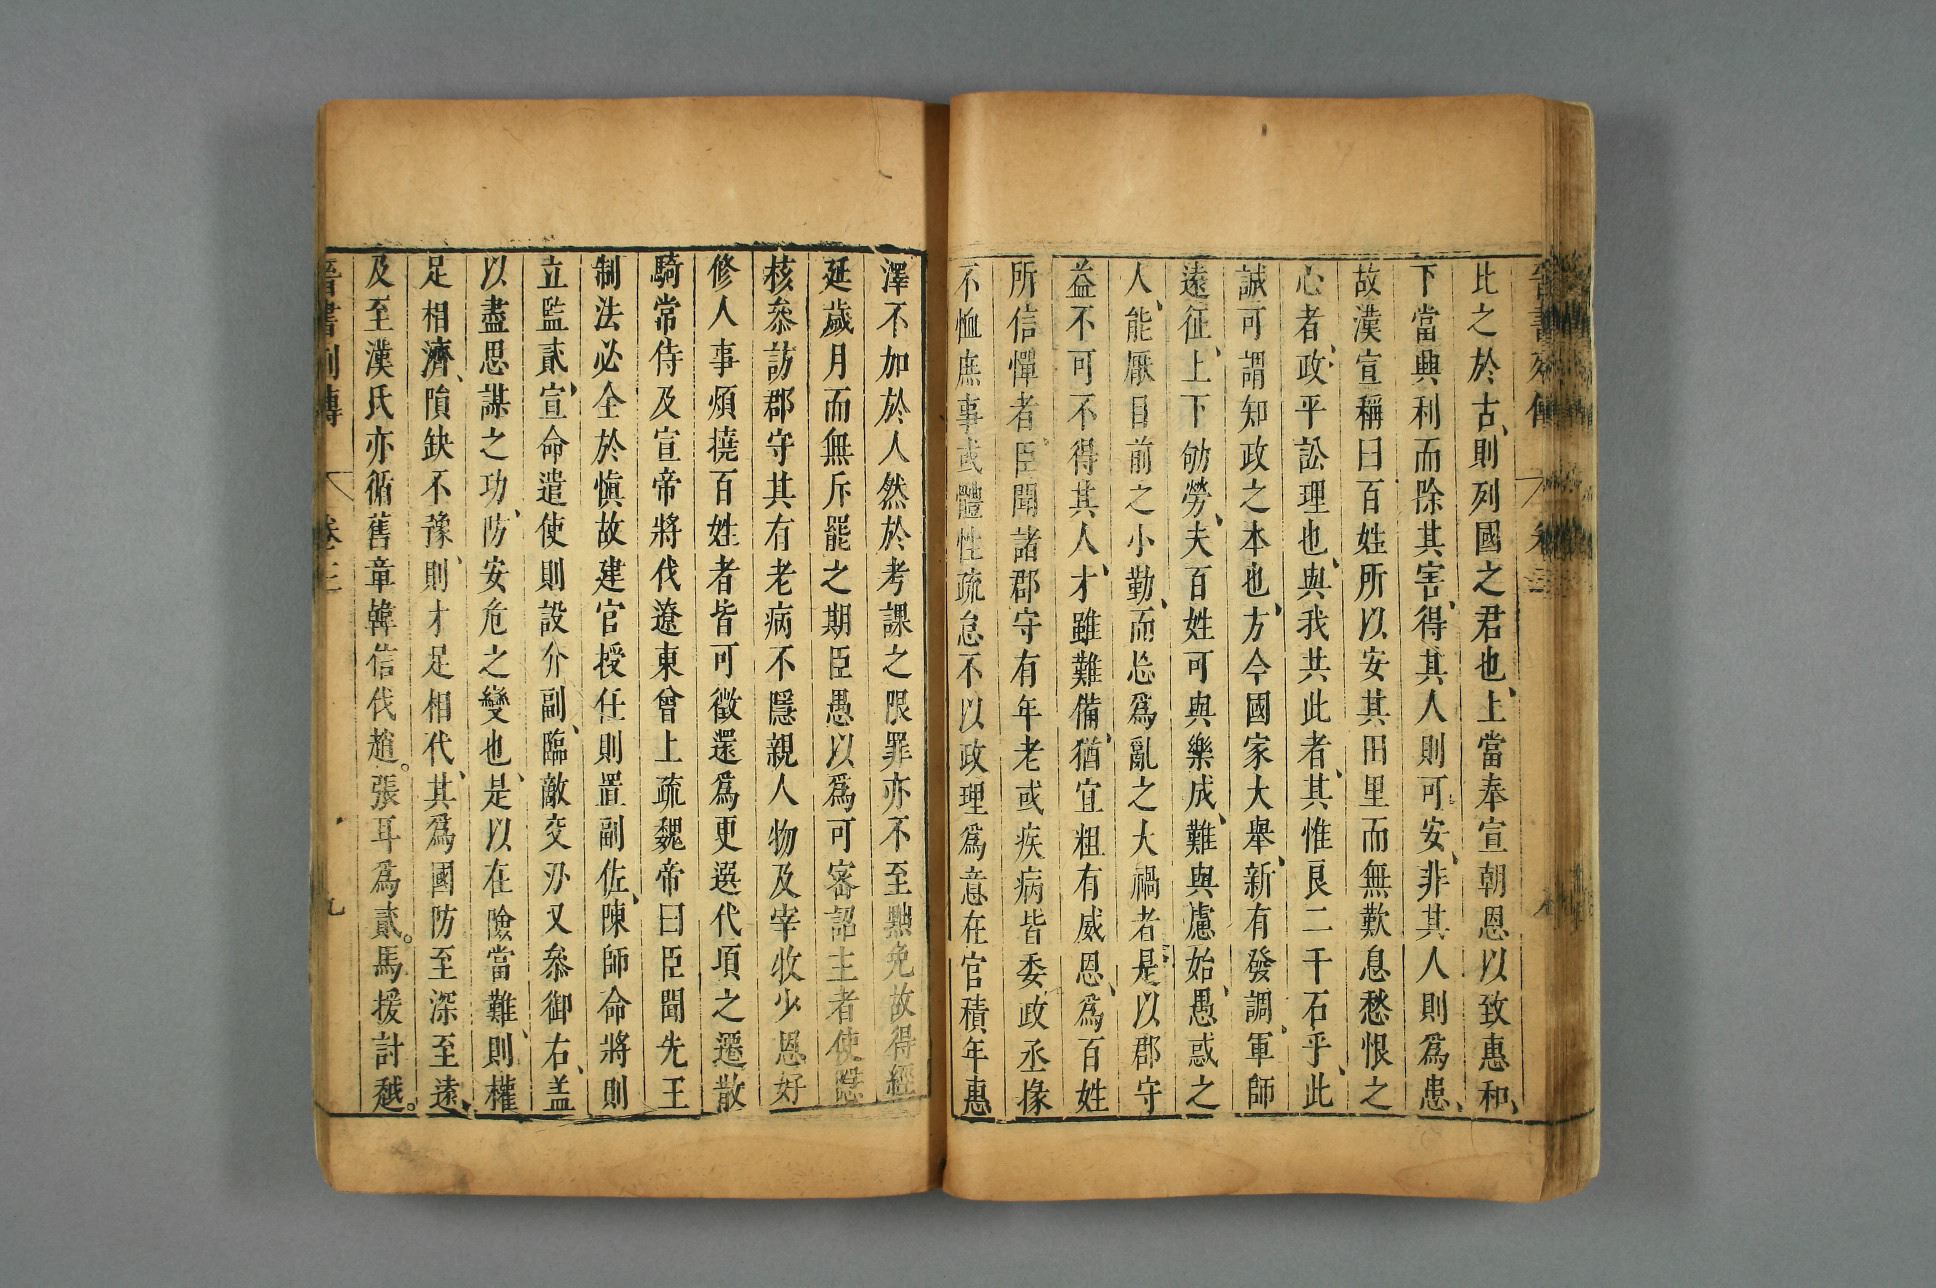 比之於古則列國之君也上當奉宣朝恩以致惠和
下當興利而除其害得其人則可安非其人則為患
故漢宣稱曰百姓所以安其田里而無歎息愁恨之
心者政平訟理也與我共此者其惟良二千石乎此
誠可謂知政之本也方今國家大舉新有發調軍師
遠征上下劬勞夫百姓可與樂成難與慮始愚惑之
人能厭目前之小勤而忘為亂之大禍者是以郡守
益不可不得其人才雖難備猶宜粗有威恩為百姓
所信憚者臣聞諸郡守有年老或疾病皆委政丞掾
不恤庶事或體性疏怠不以政理為意在官積年惠
澤不加於人然於考課之限罪亦不至黜免故得經
延歲月而無斥罷之期臣愚以為可密詔主者使隱
核叅訪郡守其有老病不隱親人物及宰牧少恩好
修人事煩撓百姓者皆可徵還為更選代項之遷散
騎常侍及宣帝將伐遼東曾上疏魏帝曰臣聞先王
制法必全於慎故建官授任則置副佐陳師命將則
立監貳宣命遣使則設介副臨敵交刃又叅御右盖
以盡思謀之功防安危之變也是以在險當難則權
足相濟隕缺不豫則才足相代其為國防至深至遠
及至漢氏亦循舊章韓信伐趙。張耳為貳。馬援討越。
晉書列傳 卷三 九